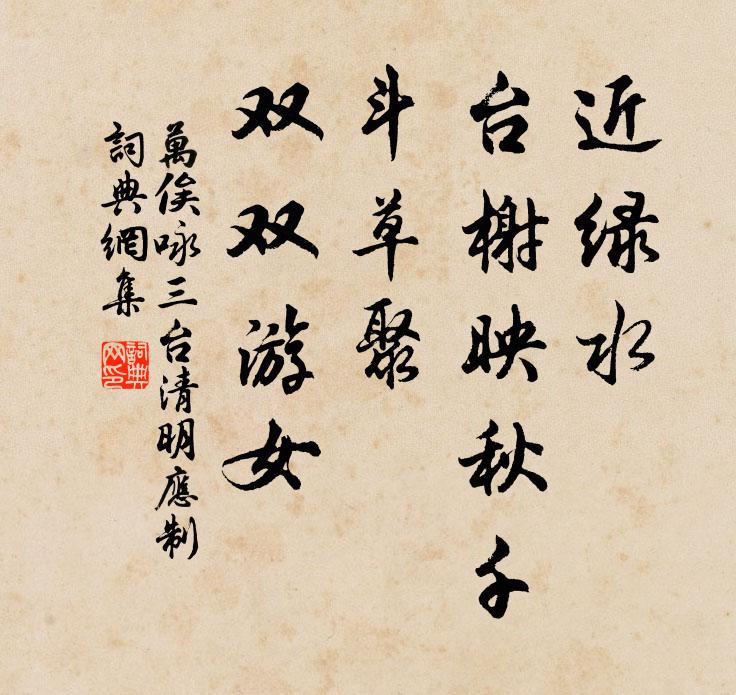 近绿水
台榭映秋千
斗草聚
双双游女
萬俟咏三台清明應制
詞典網集
詞典网印